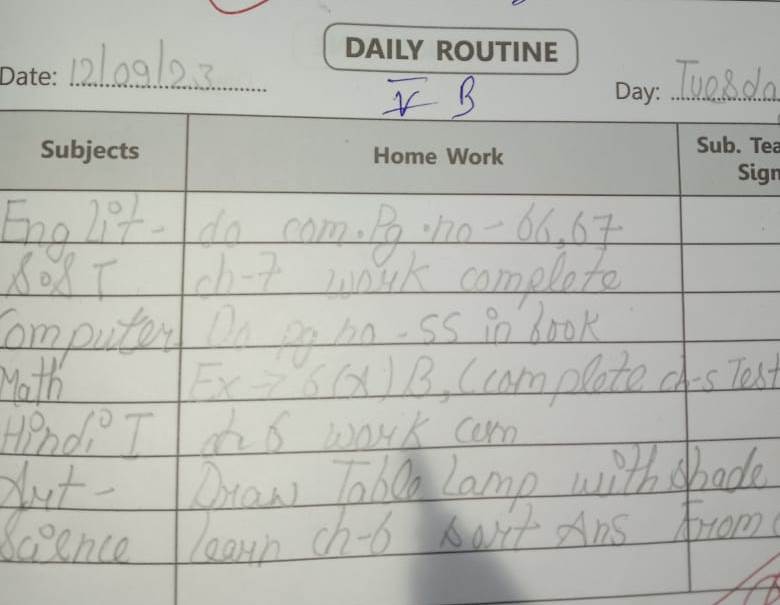 DAILY ROUTINE
Date: 12/09/23
V B
Day: Tuesda
Subjects Home Work Sub. Tea
Sign
Eng Lit - do com. Pg. no - 66, 67
S.S T ch-7 work complete
Computer Do pg no - 55 in book
Math Ex → 5(x) B, (complete ch-5 Test
Hindi I ch 6 work com
Art - Draw Table Lamp with shade
Science learn ch-6 Ans From